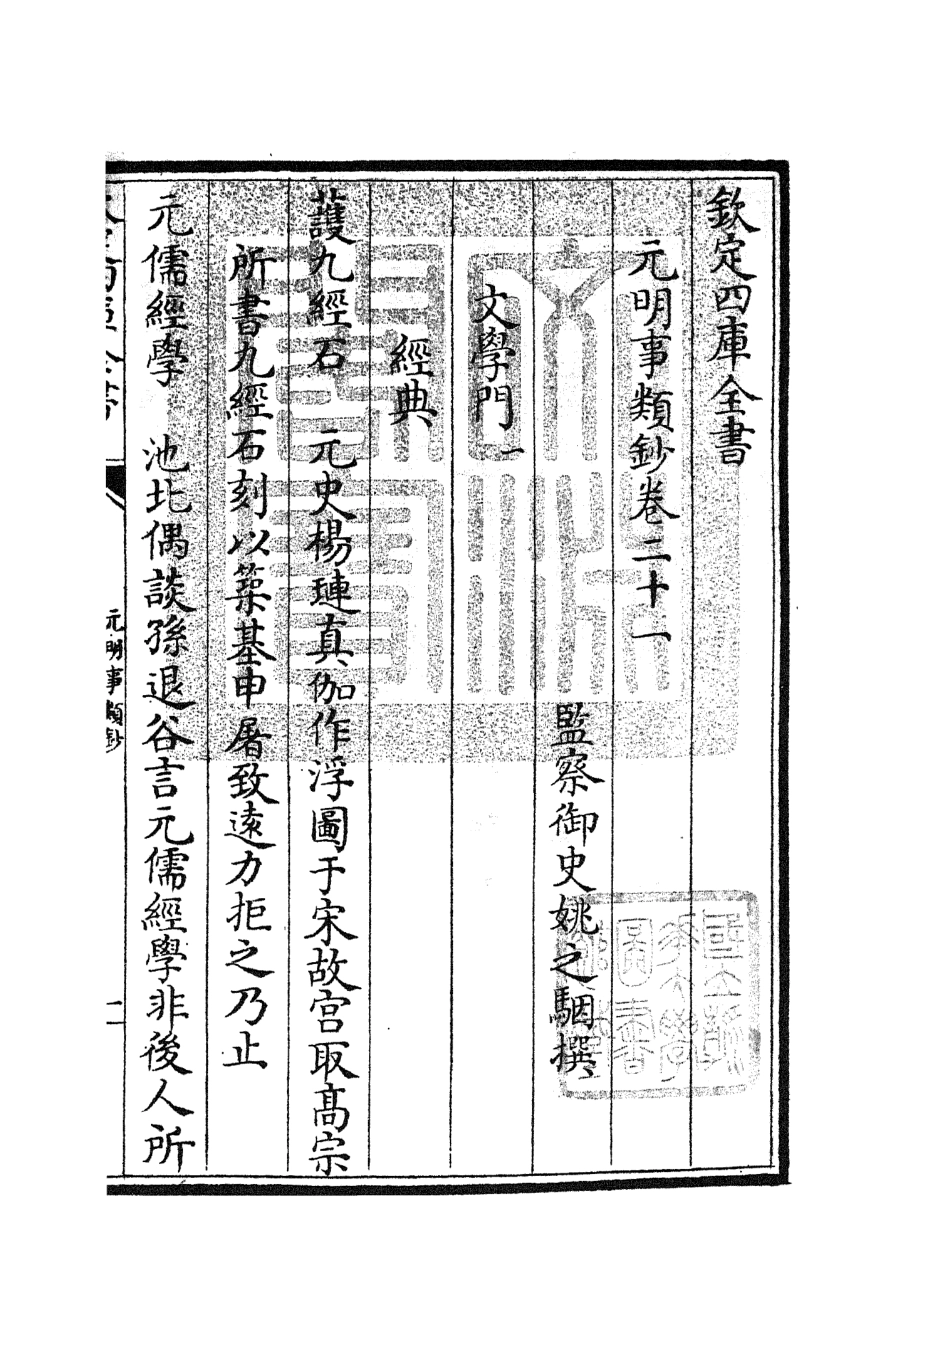 欽定四庫全書
元明事類鈔卷二十一
監察御史姚之駰撰
文學門一
經典
護九經石　元史楊璉真伽作浮圖于宋故宫取髙宗
所書九經石刻以築基申屠致逺力拒之乃止
元儒經學　池北偶談孫退谷言元儒經學非後人所
元明事類鈔
一